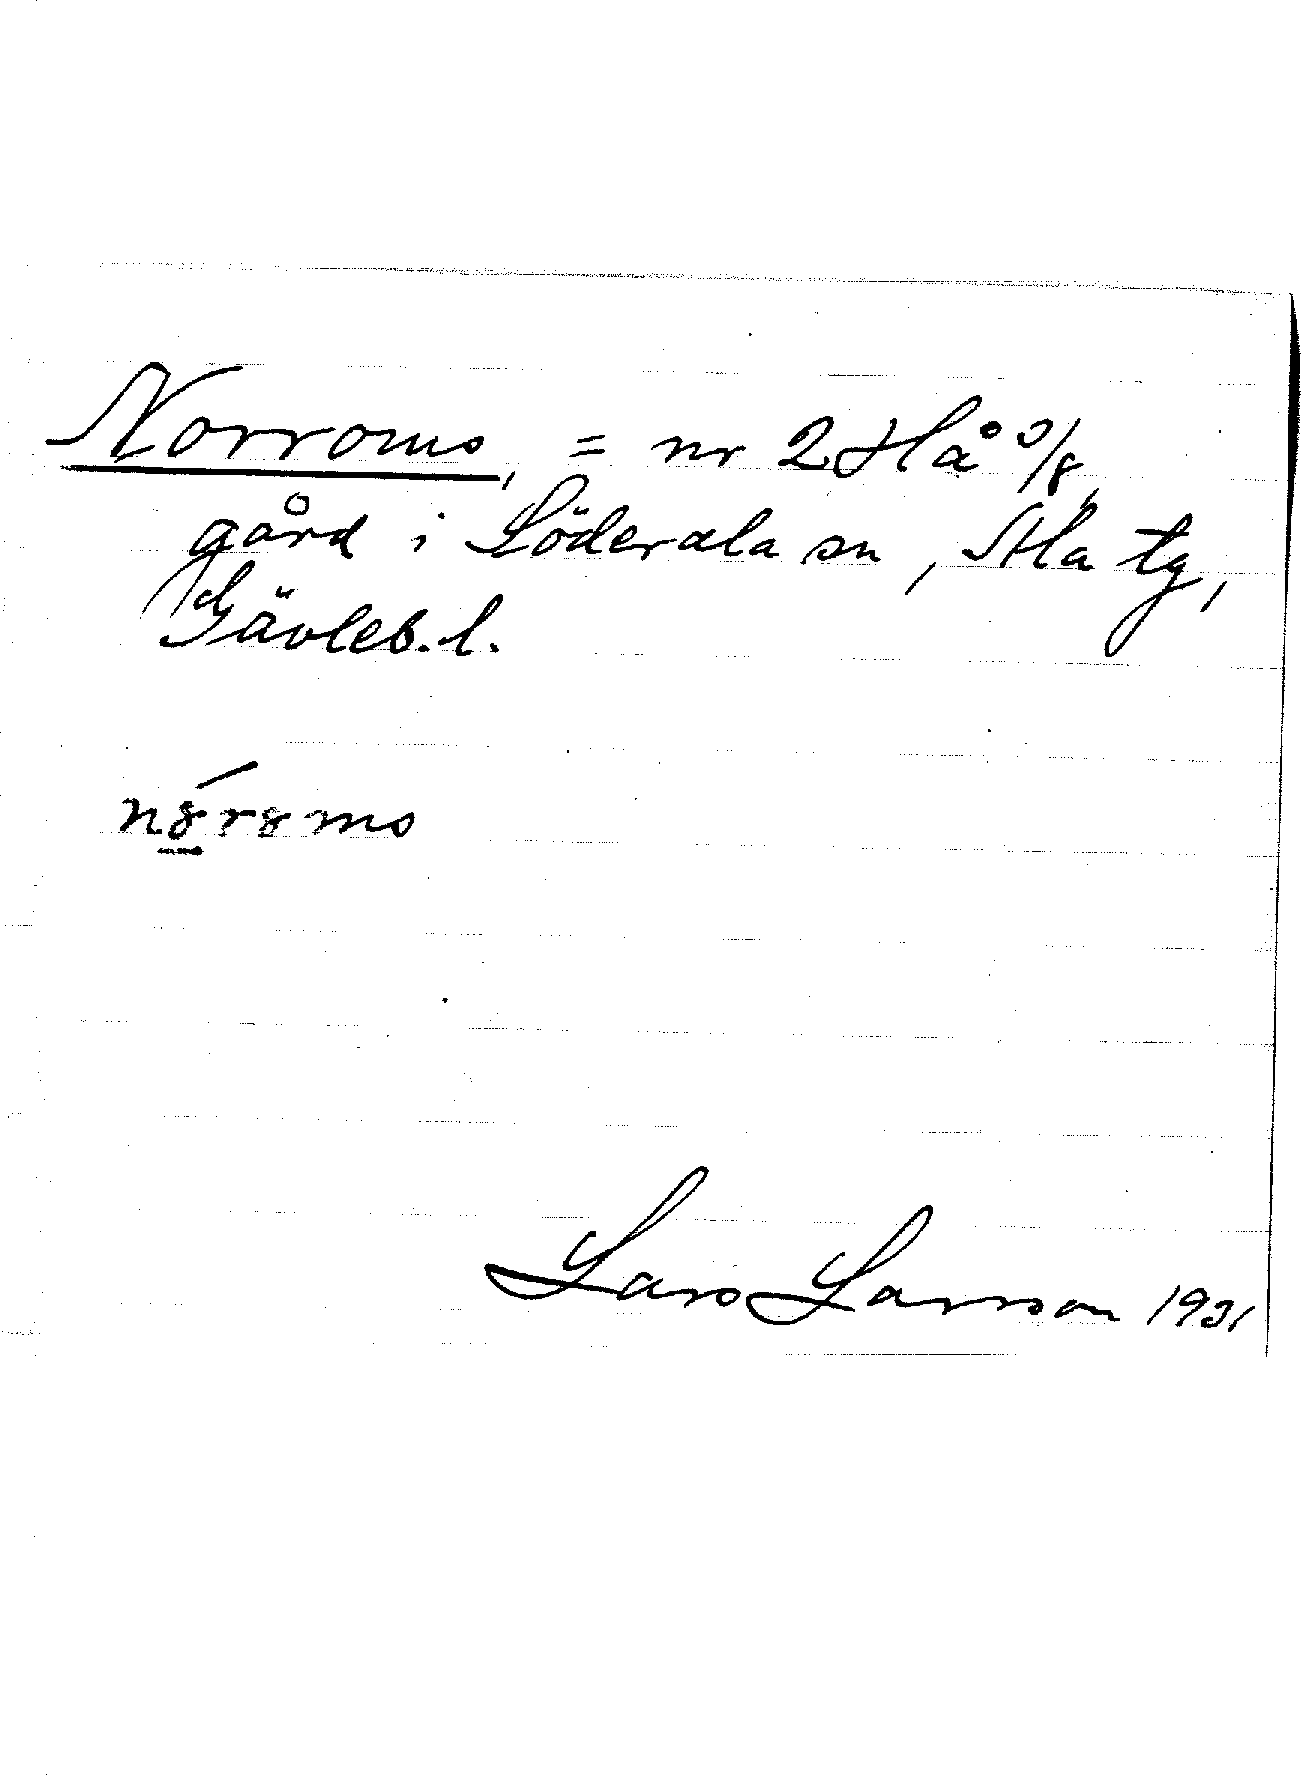 Norroms, = nr 2 Hå o/s,
gård i Söderala sn, Ala tg,
Gävleb. l.
Lars Larsson 1931